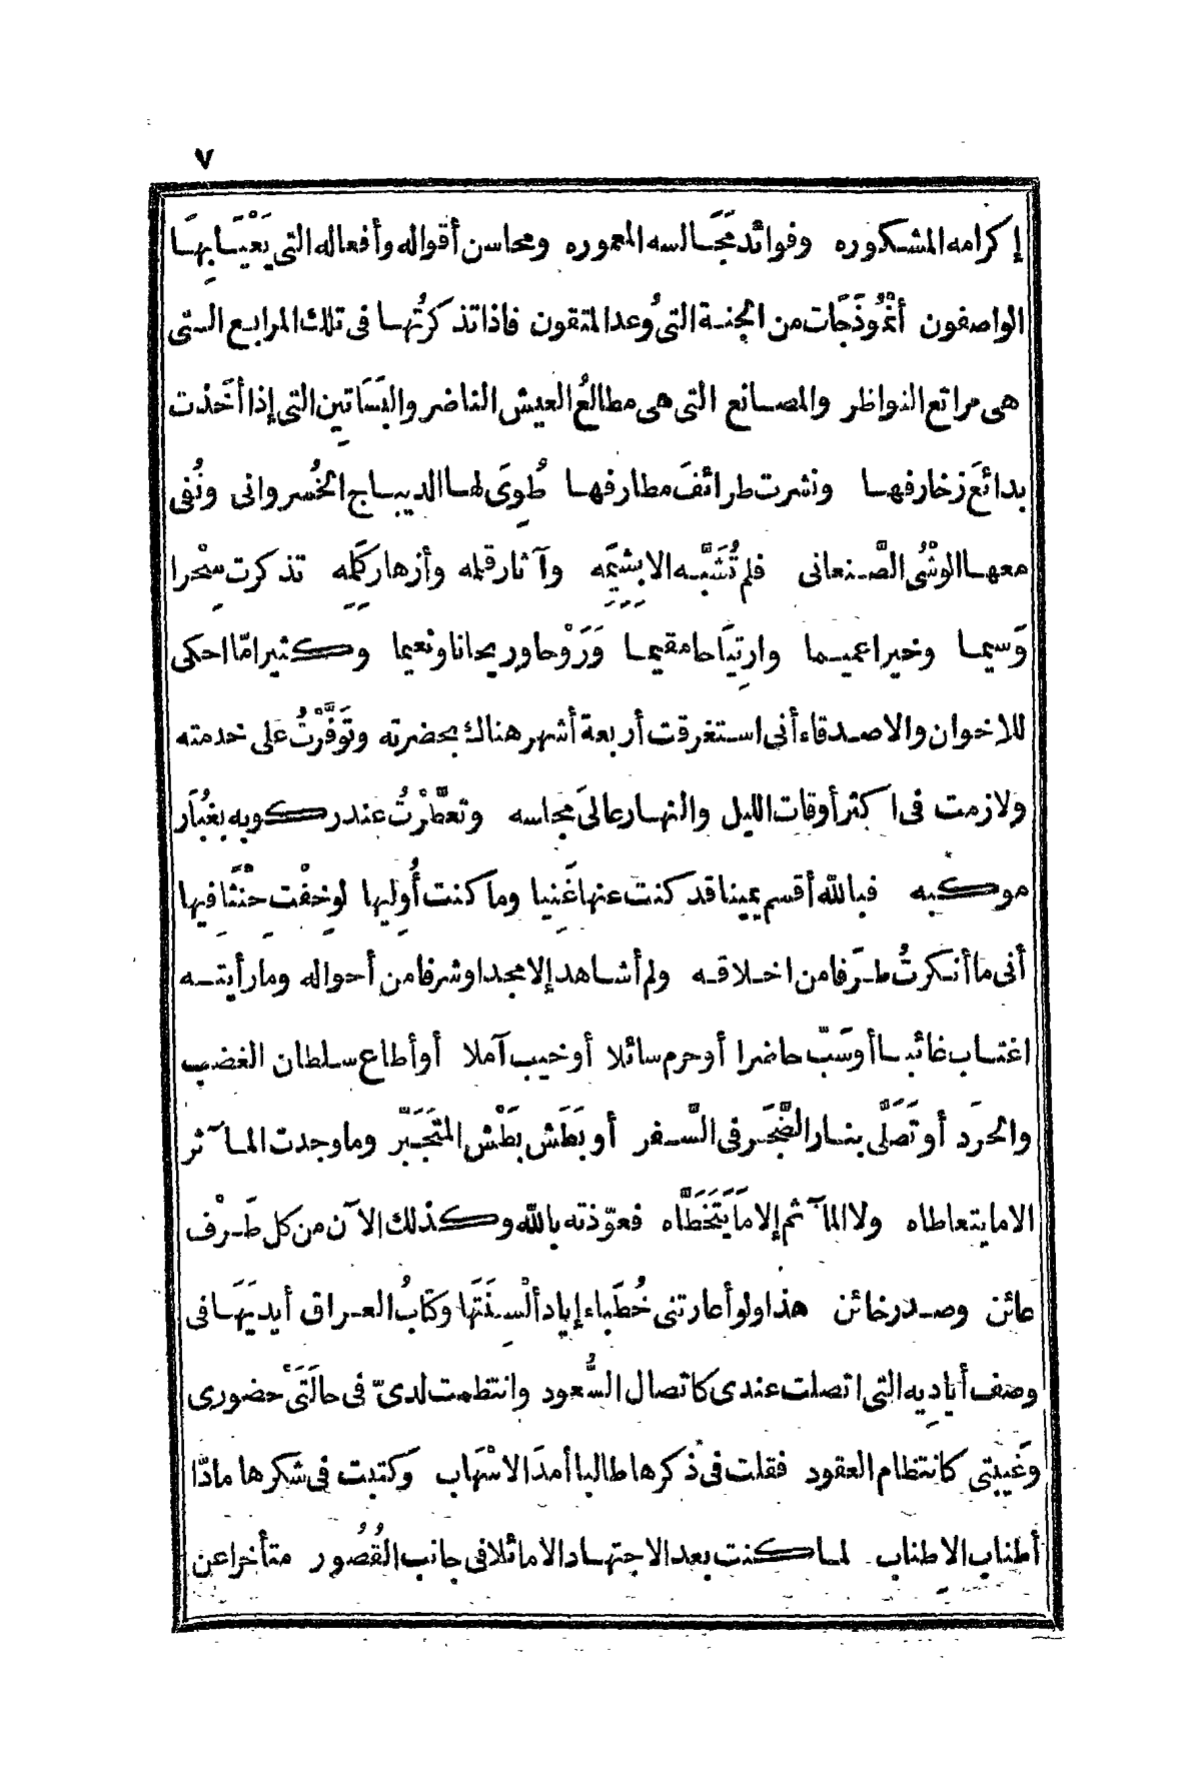 ٧
إكرامه المشكوره وفوائد مَجَالسه المعموره ومحاسن أقواله وأفعاله التى يَعْيَا بِهَا
الواصفون أَنْمُوذَجَات من الجنة التى وُعد المتقون فاذا تذكرتُها فى تلك المرابع التى
هى مراتع النواظر والمصانع التى هى مطالعُ العيش الناضر والبَسَاتِين التى إذا أَخَذت
بدائعَ زخارفها ونشرت طرائفَ مطارفها طُوِىَ لها الديباج الخُسروانى ونُفى
معها الوشْىُ الصَّنعانى فلم تُشَبَّه الا بِشِيَمِه وآثار قلمه وأزهار كَلِمِه تذكرت سِحْرا
وَسيما وخيرا عميما وارتِيَاحا مقيما وَرَوْحا وريحانا ونعيما وكثيرا مّا احكى
للاخوان والاصدقاء أنى استغرقت أربعة أشهر هناك بحضرته وتَوَفَّرْتُ على خدمته
ولازمت فى اكثر أوقات الليل والنهار عالىَ مجلسه وتعطَّرْتُ عند ركوبه بغُبَار
موكبه فبالله أقسم يمينا قد كنت عنها غَنِيا وما كنت أُوليها لو خِفْت حِنْثَا فيها
أنى ما أنكرتُ طَرَفا من اخلاقه ولم أشاهد إلا مجدا وشرفا من أحواله وما رأيته
اغتاب غائبا أو سَبّ حاضرا أو حرم سائلا أو خيب آملا أو أطاع سلطان الغضب
والحرَد أو تَصَلَّى بنار الضَّجَر فى السَّفر أو بَطَش بَطْش المتَجَبِّر وما وجدت المآثر
الا ما يتعاطاه ولا المآثم إلا ما يَتَخَطَّاه فعوّذته بالله وكذلك الآن من كل طَرْف
عائن وصدر خائن هذا ولو أعارتنى خُطَباء إياد ألْسِنَتَها وكتَابُ العراق أيديَهَا فى
وصف أيادِيه التى اتصلت عندى كاتصال السُّعود وانتظمت لدىّ فى حالَتَىْ حضورى
وغَيبتى كانتظام العقود فقلت فى ذكرها طالبا أمدَ الاسْهَاب وكتبت فى شكرها مادّا
أطناب الاِطناب لما كنت بعد الاجتهاد الا مائلا فى جانب القُصُور متأخرا عن